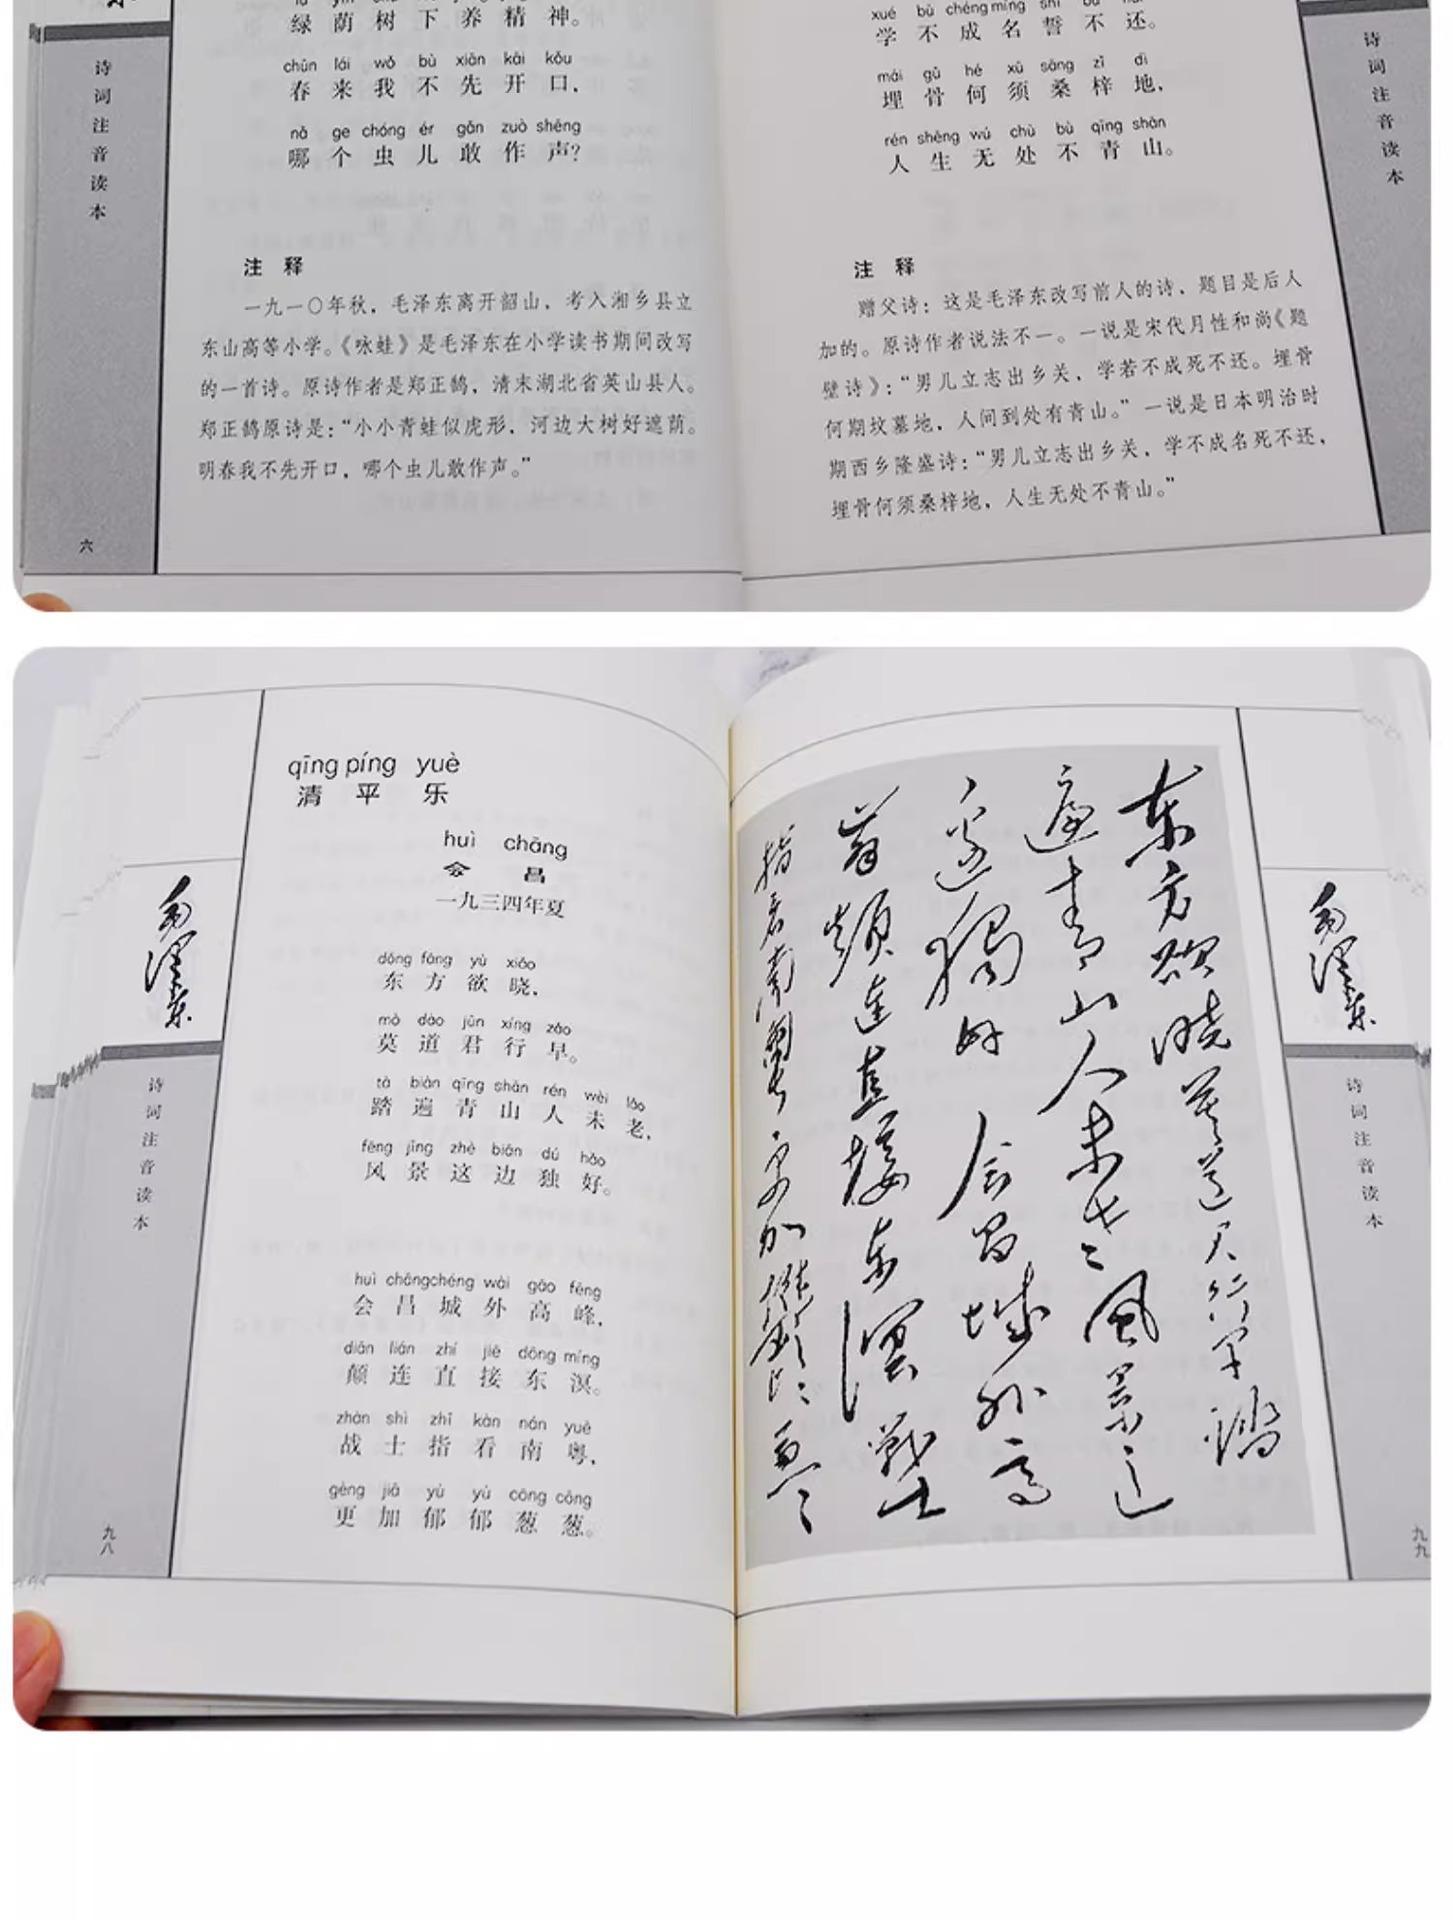 绿荫树下养精神。
chūn lái wǒ bù xiān kāi kǒu
春来我不先开口，
nǎ ge chóng ér gǎn zuò shēng
哪个虫儿敢作声？
注 释
一九一〇年秋，毛泽东离开韶山，考入湘乡县立
东山高等小学。《咏蛙》是毛泽东在小学读书期间改写
的一首诗。原诗作者是郑正鹄，清末湖北省英山县人。
郑正鹄原诗是：“小小青蛙似虎形，河边大树好遮荫。
明春我不先开口，哪个虫儿敢作声。”
诗词注音读本
六
xué bù chéng míng shì bù
学不成名誓不还。
mái gǔ hé xū sāng zǐ dì
埋骨何须桑梓地，
rén shēng wú chù bù qīng shān
人生无处不青山。
注 释
赠父诗：这是毛泽东改写前人的诗，题目是后人
加的。原诗作者说法不一。一说是宋代月性和尚《题
壁诗》：“男儿立志出乡关，学若不成死不还。埋骨
何期坟墓地，人间到处有青山。”一说是日本明治时
期西乡隆盛诗：“男儿立志出乡关，学不成名死不还，
埋骨何须桑梓地，人生无处不青山。”
诗词注音读本
qīng píng yuè
清平乐
huì chāng
会昌
一九三四年夏
dōng fāng yù xiǎo
东方欲晓，
mò dào jūn xíng zǎo
莫道君行早。
tà biàn qīng shān rén wèi lǎo
踏遍青山人未老，
fēng jǐng zhè biān dú hǎo
风景这边独好。
huì chāng chéng wài gāo fēng
会昌城外高峰，
diān lián zhí jiē dōng míng
颠连直接东溟。
zhàn shì zhǐ kàn nán yuè
战士指看南粤，
gèng jiā yù yù cōng cōng
更加郁郁葱葱。
毛泽东
诗词注音读本
九八
东方欲晓莫道君行早踏
遍青山人未老风景这
边独好会昌城外高
峰颠连直接东溟战士
指看南粤更加郁郁葱葱
毛泽东
诗词注音读本
九九